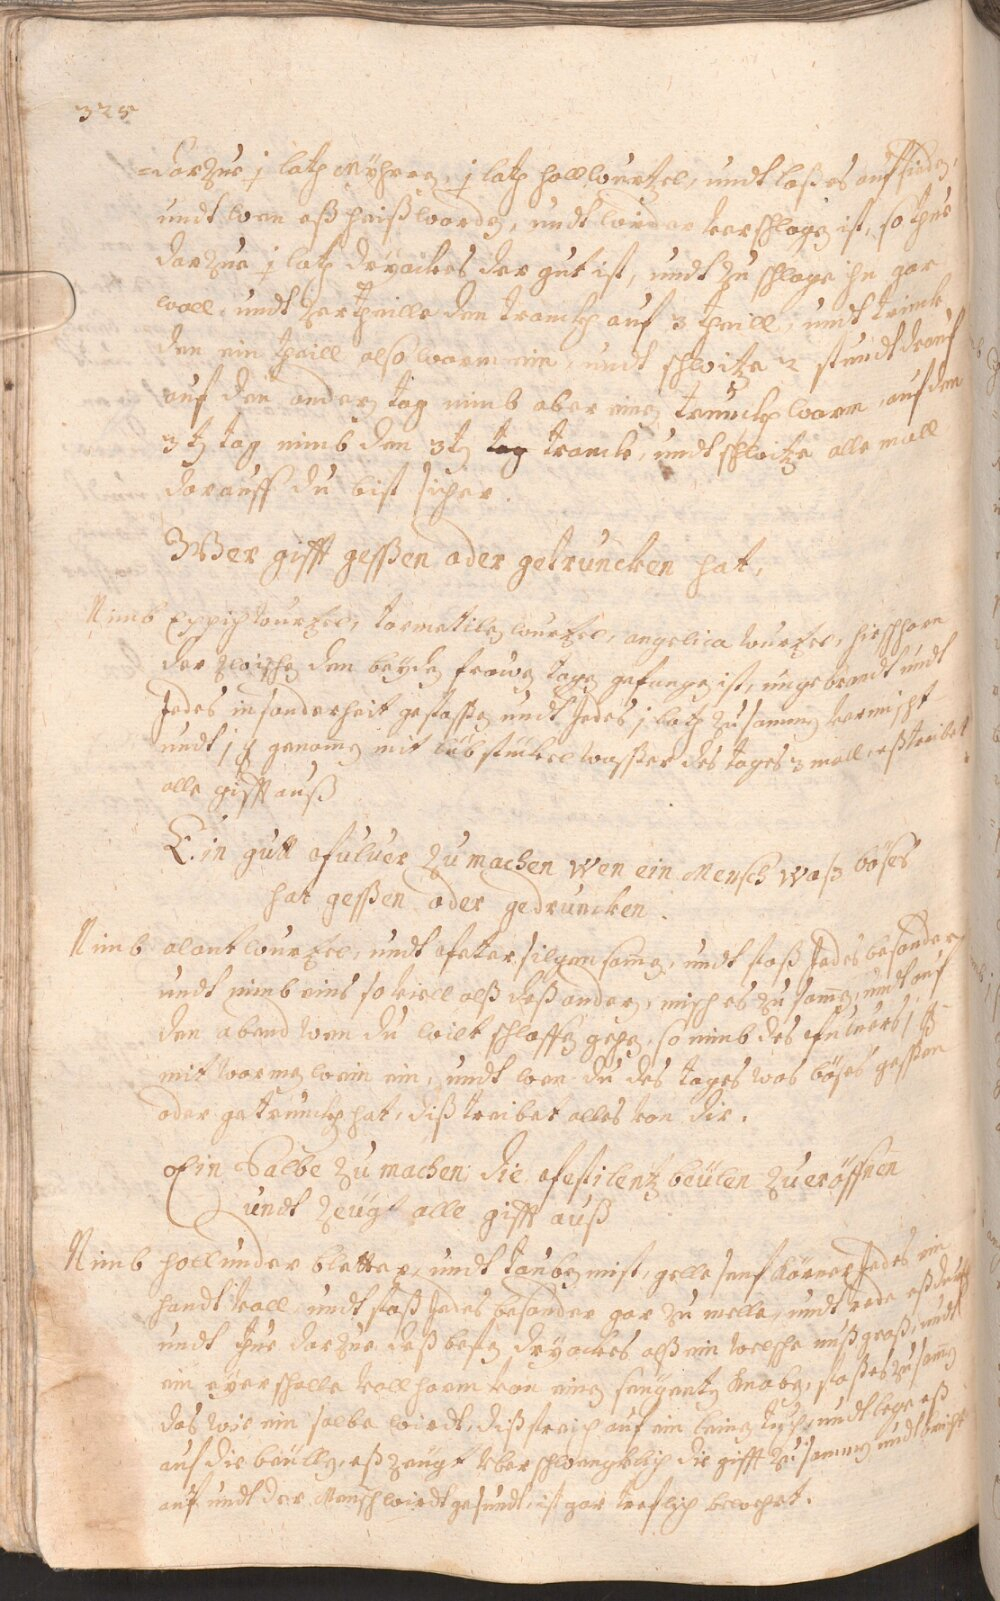 325
=darzue j loth Myhren, j loth hollwurtzel, undt laß es auffsieden,
undt wen eß heiß worden, undt wieder verschlagen ist, so thue
darzue j loth dryackes der gut ist, undt zu schlage ihn gar
woll, undt zertheille den tranckh auf 3 theill, undt trinck
den ein theill also warm ein, undt schwitze 2 stundt drauf
auf den andern tag nimb aber einen trunckh warm, auf den
3 tn tag nimb den 3 tn tranck, undt schwitze alle mall
darauff du bist sicher.
Wer gifft geßen oder getruncken hat,
Nimb Eppichwurtzel, tormentilen wurtzel, angelica wurtzel, hirschhorn
der zwischen den beyden frawen tagen gefangen ist, ungebrandt undt
Jedes insonderheit gestoßen undt Jedes j loth zusamen vermischt
undt j q genomen mit wasser des tages 3 mall, eß treibet
alle gifft auß
Ein gutt Pulver zu machen wen ein Mensch waß böses
hat geßen oder gedruncken.
Nimb alantwurtzel, undt Petersilgensamen, undt stoß Jedes besonder
undt nimb eins so viell alß deß ander, misch es zu samen, undt auf
den abend wen du wilt schlaffen gehen, so nimb des Pulvers
mit warmen wein ein, undt wen du des tages was böses gessen
oder getrunckhen hat, diß treibet alles von dir.
Ein Salbe zu machen die Pestilentz beülen zueröffnen
undt zeugt alle gifft auß
Nimb hollunder bletter, undt tauben mist, gelle senf körner Jedes ein
handt voll, undt stoß Jedes besonder gar zu melle, undt
undt thue darzue deß besten dryackes alß ein welsche nuß groß, undt
ein eyerschalle voll harn von einen seugenten knaben, stoß es zusamen
das wie ein salbe wirdt, diß streich auf ein leinen tuch, undt lege eß
auf die beüllen, eß zeugt uberschwencklich die gifft zusamen undt bricht
auf undt der Mensch wirdt gesundt, ist gar treflich bewehrt.